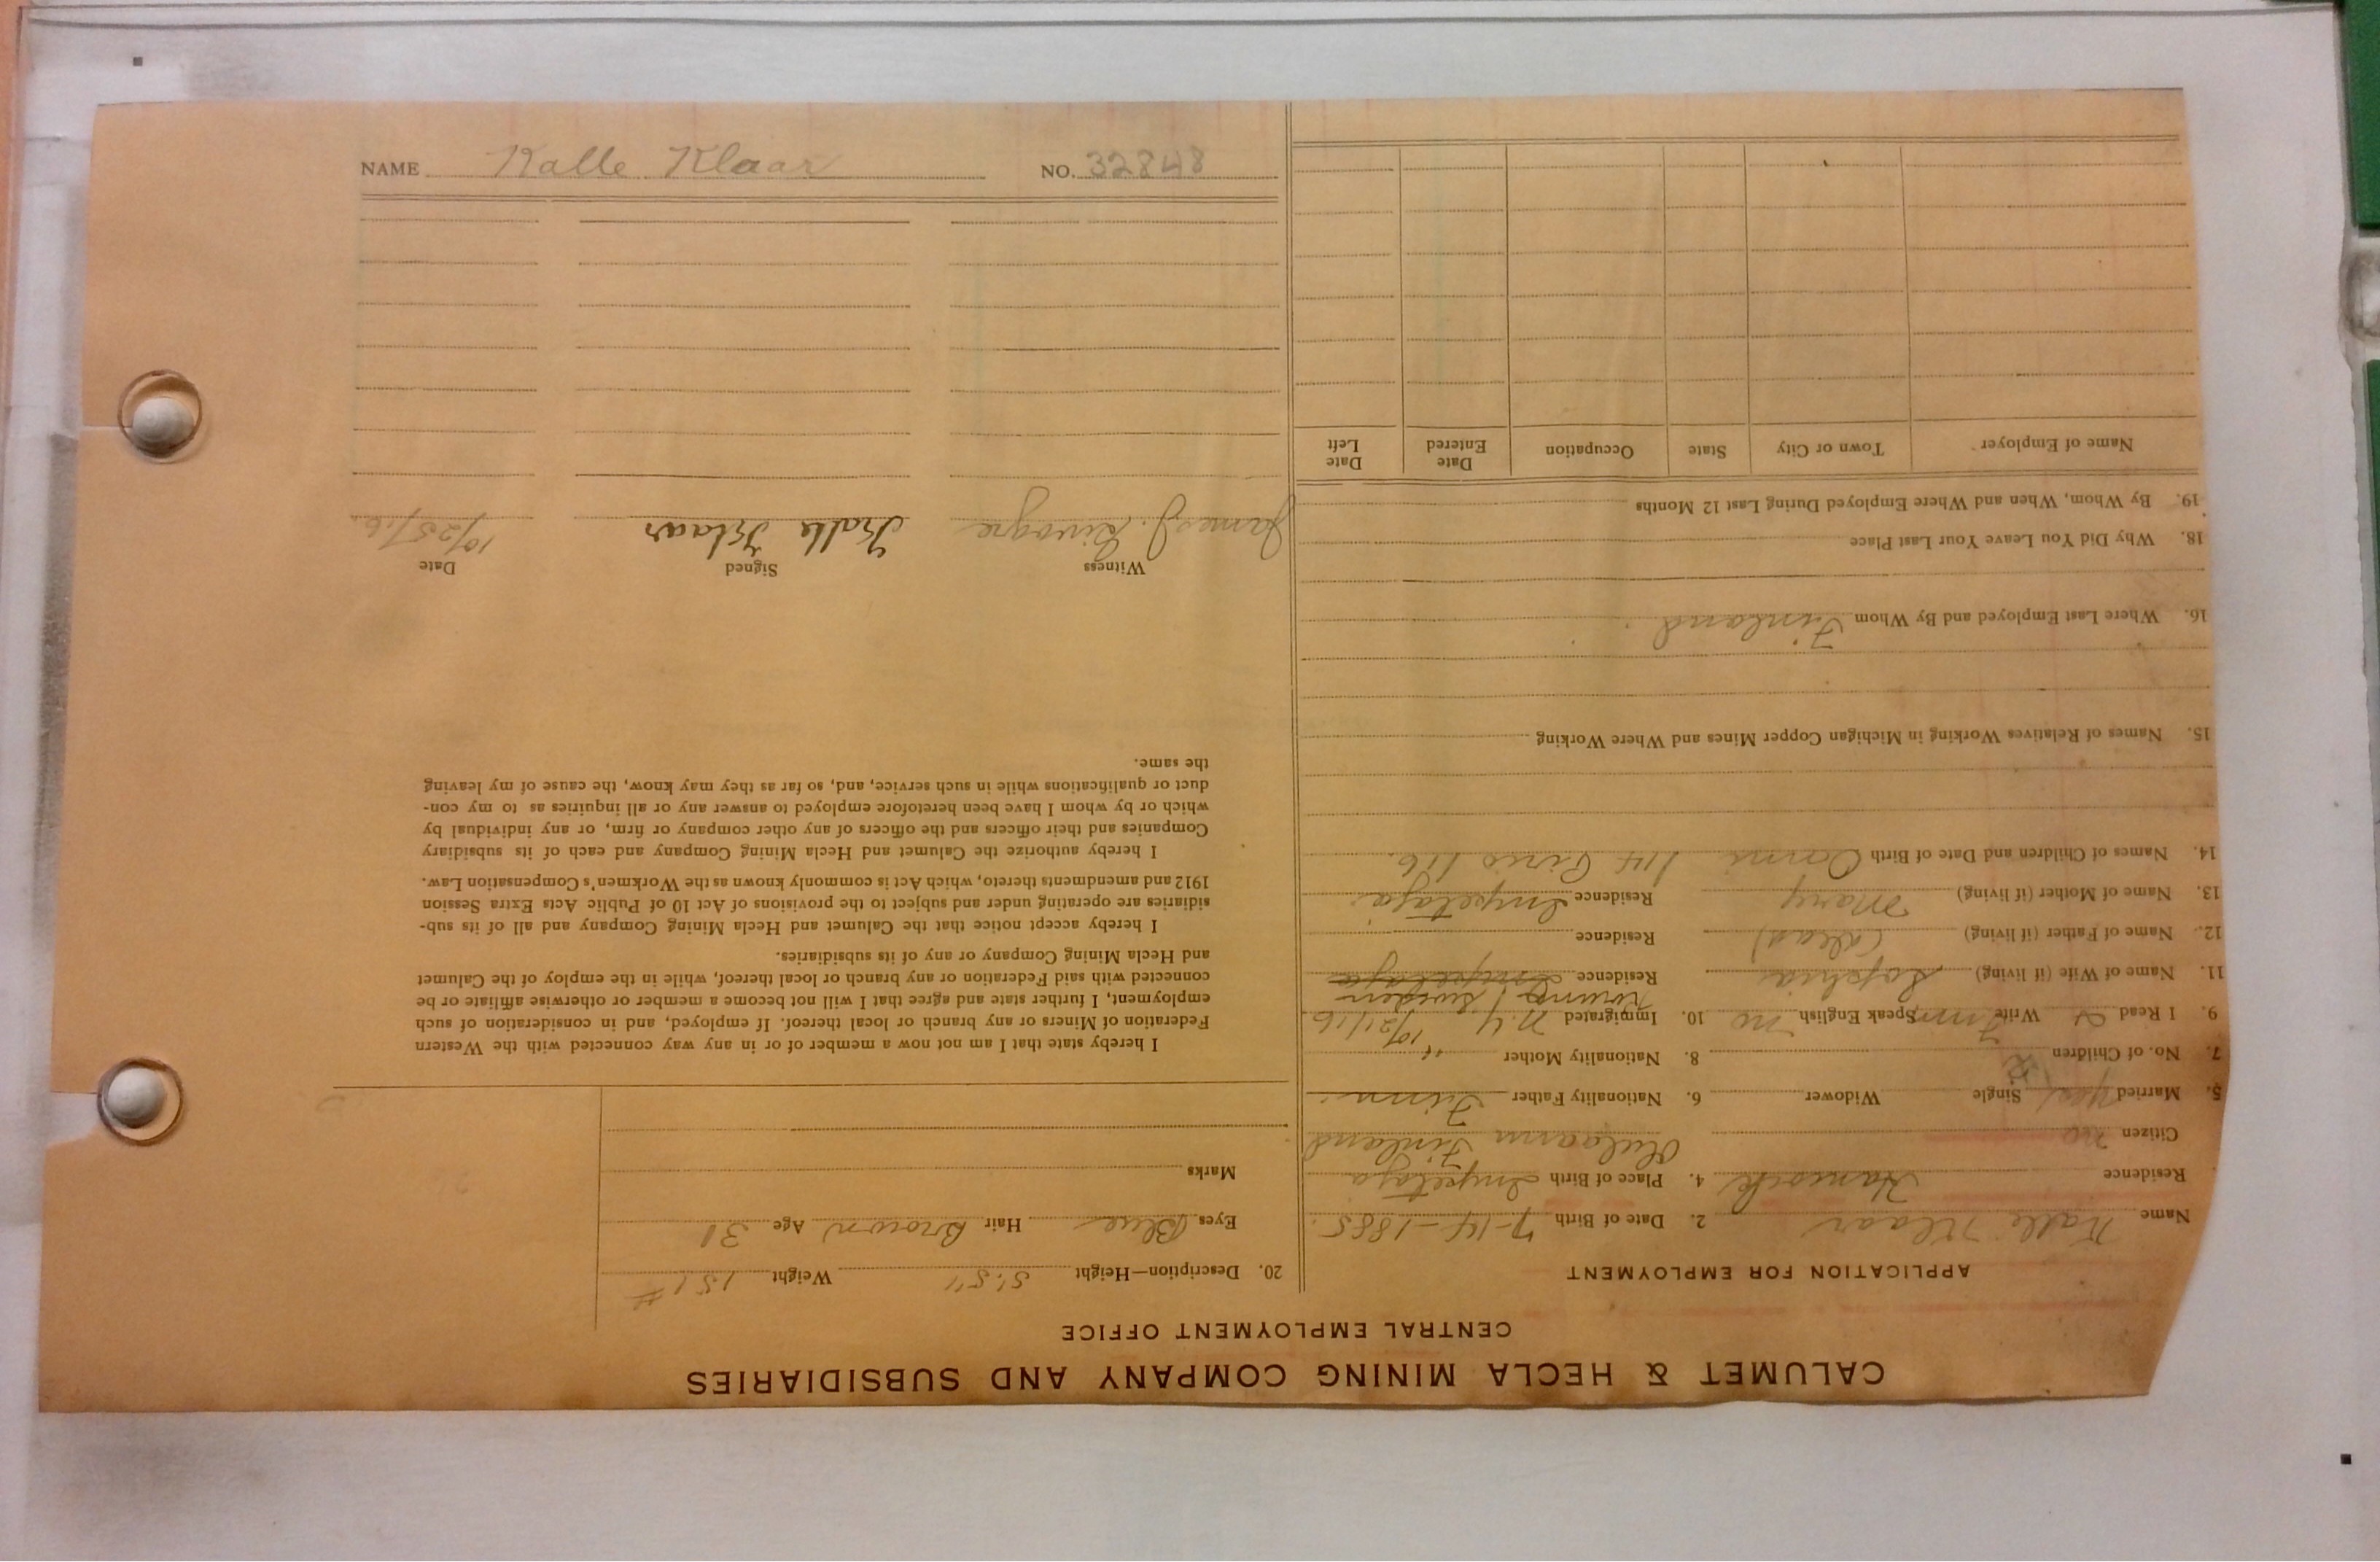 CALUMET & HECLA MINING COMPANY AND SUBSIDIARIES
CENTRAL EMPLOYMENT OFFICE
APPLICATION FOR EMPLOYMENT
Name Kalle Klaar 2. Date of Birth 7-14-1885
Residence Hancock 4. Place of Birth Impetaja
Citizen no Finland
5. Married yes Single Widower 6. Nationality Father Finn
7. No. of Children 2 8. Nationality Mother "
9. I Read Write Finn Speak English no 10. Immigrated N.Y. 10/21/16
11. Name of Wife (if living) Sophia Residence Sweden
12. Name of Father (if living) (dead) Residence
13. Name of Mother (if living) Mary Residence Impetaja
14. Names of Children and Date of Birth Onni 114 116
15. Names of Relatives Working in Michigan Copper Mines and Where Working
16. Where Last Employed and By Whom Finland
18. Why Did You Leave Your Last Place
19. By Whom, When and Where Employed During Last 12 Months
Name of Employer Town or City State Occupation Date Entered Date Left
20. Description—Height 5'.5" Weight 151 #
Eyes Blue Hair Brown Age 31
Marks
I hereby state that I am not now a member of or in any way connected with the Western
Federation of Miners or any branch or local thereof. If employed, and in consideration of such
employment, I further state and agree that I will not become a member or otherwise affiliate or be
connected with said Federation or any branch or local thereof, while in the employ of the Calumet
and Hecla Mining Company or any of its subsidiaries.
I hereby accept notice that the Calumet and Hecla Mining Company and all of its sub-
sidiaries are operating under and subject to the provisions of Act 10 of Public Acts Extra Session
1912 and amendments thereto, which Act is commonly known as the Workmen's Compensation Law.
I hereby authorize the Calumet and Hecla Mining Company and each of its subsidiary
Companies and their officers and the officers of any other company or firm, or any individual by
which or by whom I have been heretofore employed to answer any or all inquiries as to my con-
duct or qualifications while in such service, and, so far as they may know, the cause of my leaving
the same.
Witness Signed Date
James J. Kalle Klaar 10/25/16
NAME Kalle Klaar NO. 32848